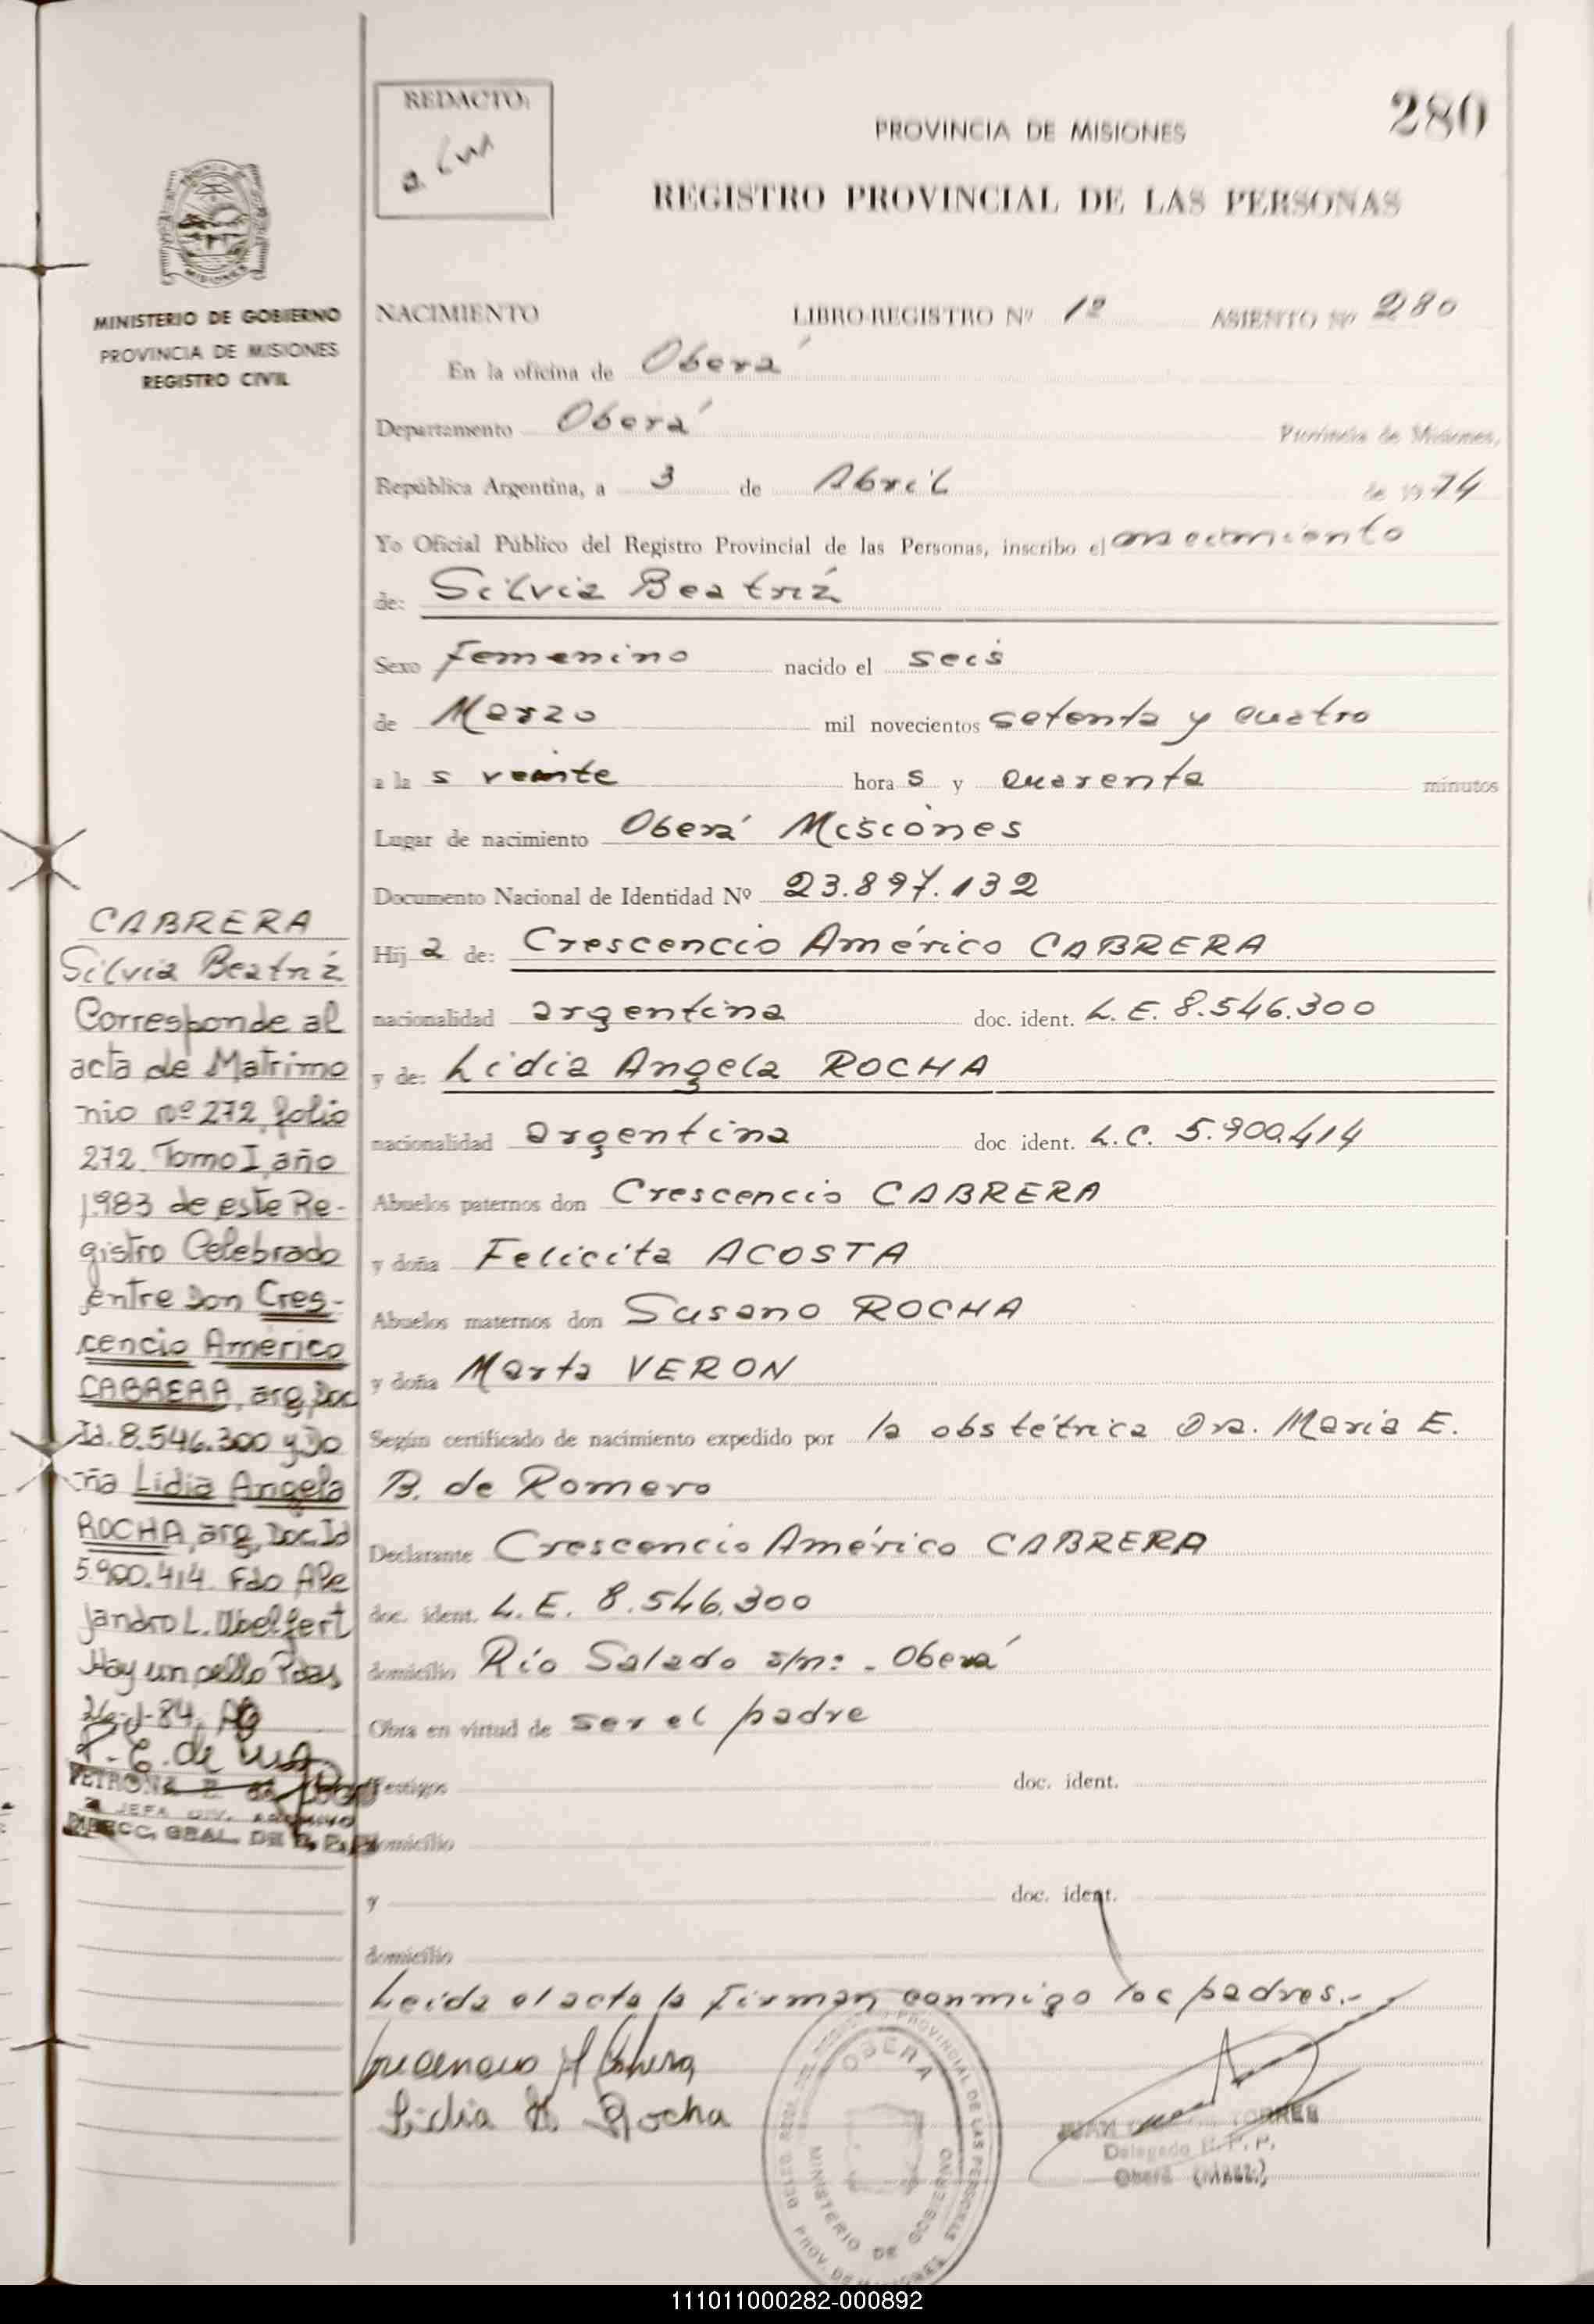 REDACTO:
PROVINCIA DE MISIONES
280
REGISTRO PROVINCIAL DE LAS PERSONAS
MISIONES
MINISTERIO DE GOBIERNO
PROVINCIA DE MISIONES
REGISTRO CIVIL
NACIMIENTO LIBRO-REGISTRO Nº 1º ASIENTO Nº 280
En la oficina de Oberá
Departamento Oberá Provincia de Misiones,
República Argentina, a 3 de Abril de 1974
Yo Oficial Público del Registro Provincial de las Personas, inscribo el nacimiento
de: Silvia Beatríz
Sexo Femenino nacido el seis
de Marzo mil novecientos setenta y cuatro
a la s veinte hora s y cuarenta minutos
Lugar de nacimiento Oberá Misiones
Documento Nacional de Identidad Nº 23.897.132
Hij a de: Crescencio Américo CABRERA
nacionalidad argentina doc. ident. L.E. 8.546.300
y de: Lidia Angela ROCHA
nacionalidad argentina doc. ident. L.C. 5.900.414
Abuelos paternos don Crescencio CABRERA
y doña Felicita ACOSTA
Abuelos maternos don Susano ROCHA
y doña Marta VERON
Según certificado de nacimiento expedido por la obstétrica Dra. Maria E.
B. de Romero
Declarante Crescencio Américo CABRERA
doc. ident. L.E. 8.546.300
domicilio Río Salado s/nº - Oberá
Obra en virtud de ser el padre
Testigos doc. ident.
domicilio
y doc. ident.
domicilio
Leida el acta la firman conmigo los padres.-
Lidia A. Rocha
CABRERA
Silvia Beatríz
Corresponde al
acta de Matrimo
nio nº 272, folio
272, Tomo I, año
1983 de este Re-
gistro Celebrado
entre Don Cres-
cencio Américo
CABRERA, arg, Doc
Id. 8.546.300 y Do
ña Lidia Angela
ROCHA, arg, Doc. Id
5.900.414. Fdo Ale
jandro L.
Hay un sello Pdas
84
PETRONA E. de
JEFA DIV. ARCHIVO
DIRECC. GRAL. DE R. P. P.
OBERA
MINISTERIO DE GOBIERNO
JUAN TORRES
Delegado R. P. P.
Oberá (Mnes.)
111011000282-000892